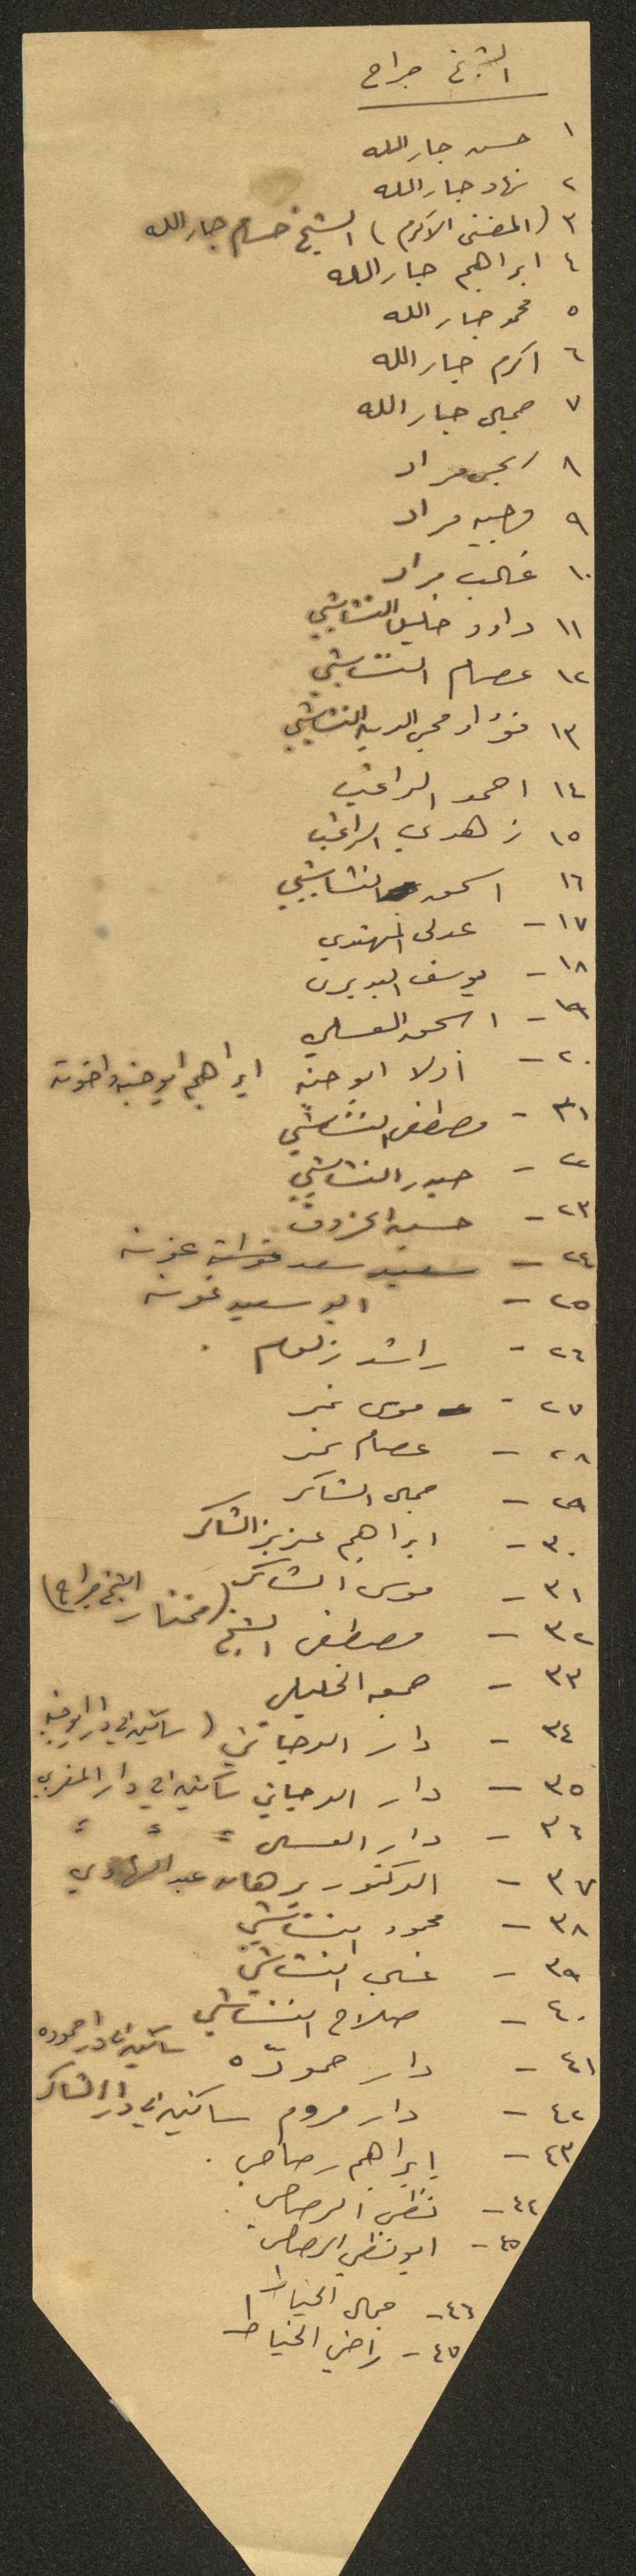 الشيخ جراح
١ حسن جار الله
٢ نهاد جار الله
٣ (المفتى الاكرم) الشيخ حسام جار الله
٤ ابراهيم جار الله
٥ محمد جار الله
٦ اكرم جار الله
٧ جميل جار الله
٨ مراد
٩ وجيه مراد
١٠ غالب مراد
١١ داود خليل النشاشيبي
١٢ عصام النشاشيبي
١٣ فؤاد محي الدين النشاشيبي
١٤ احمد الراغب
١٥ زهدي الراغب
١٦ اسحق النشاشيبي
١٧ - عدلى المهتدي
١٨ - يوسف البديرى
١٩ - اسحق العسلي
٢٠ - اولاد ابو جبنه ابراهيم ابو جبنه واخوته
٢١ - مصطفى النشاشيبي
٢٢ - حيدر النشاشيبي
٢٣ - حسين الخروف
٢٤ - سعيد سعد غوشه
٢٥ - ابو سعيد غوشه
٢٦ - راشد زلوم
٢٧ - موسى نمر
٢٨ - عصام نمر
٢٩ - جمال الشاكر
٣٠ - ابراهيم عزيز الشاكر
٣١ - موسى الشاكر
٣٢ - مصطفى الشيخ (مختار الشيخ جراح)
٣٣ - جمعه الخليلي
٣٤ - دار الدجاني (ساكنين في دار ابو جبنه
٣٥ - دار الدجاني ساكنين في دار المغربي
٣٦ - دار العسلى = = =
٣٧ - الدكتور برهان عبد الهادي
٣٨ - محمود النشاشيبي
٣٩ - علي النشاشيبي
٤٠ - صلاح النشاشيبي
٤١ - دار حمودّه ساكنين في دار حموده
٤٢ - دار مروم ساكنين في دار الشاكر
٤٣ - إبراهيم رصاص
٤٤ - نظمي الرصاص
٤٥ - ابو نظمي الرصاص
٤٦ - جمال الخياط
٤٧ - راضي الخياط